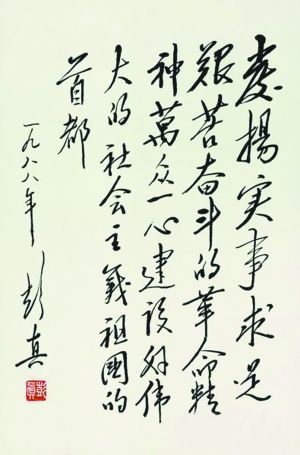 发扬实事求是
艰苦奋斗的革命精
神萬众一心建设好伟
大的社会主義祖國的
首都
一九八八年
彭真
彭真